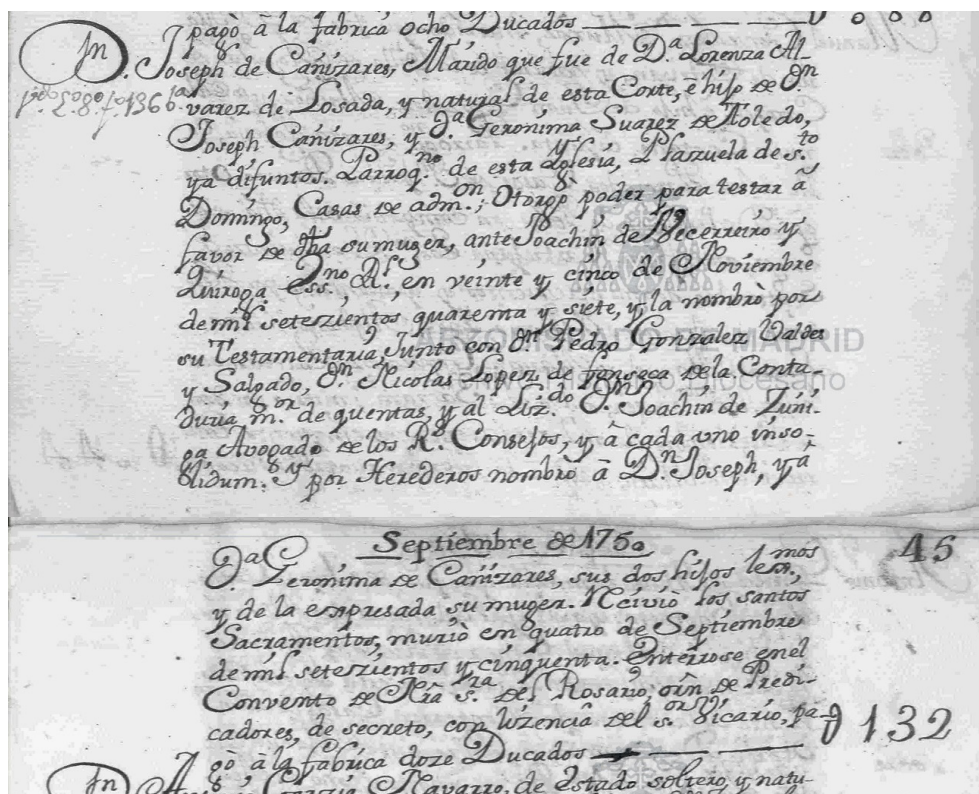 pagò â la fabrica ocho Ducados
D.n Joseph de Cañizares, Marido que fue de D.a Lorenza Al-
varez de Losada, y natural de esta Corte, è hijo de D.n
Joseph Cañizares, y D.a Geronima Suarez de Toledo,
ya difuntos. Parroq.no de esta Yglesia, Plazuela de S.to
Domingo, Casas de adm.on; Otorgò poder para testar â
favor de dha su muger, ante Joachin de Becerreiro y
Quiroga ess.no R.l en veinte y cinco de Noviembre
de mil setezientos quarenta y siete, y la nombrò por
su Testamentaria, Junto con D.n Pedro Gonzalez Valdes
ARZOBISPADO DE MADRID
y Salgado, D.n Nicolas Lopez de fonseca de la Conta-
Diocesano
duria m.or de quentas, y al Liz.do D.n Joachin de Zuñi-
ga Avogado de los R.s Consejos, y â cada uno inso-
lidum. Y por Herederos nombrò â D.n Joseph, y â
Septiembre de 1750
45
D.a Geronima de Cañizares, sus dos hijos lexmos,
y de la expresada su muger. Rcivió los santos
Sacramentos, muriò en quatro de Septiembre
de mil setezientos y cinquenta. Enterrose en el
Convento de Nrâ S.ra del Rosario, orn de Predi-
cadores, de secreto, con lizencia del S.or Vicario, pa-
132
gò â la fabrica doze Ducados
Garcia Navarro, de estado soltero, y natu-